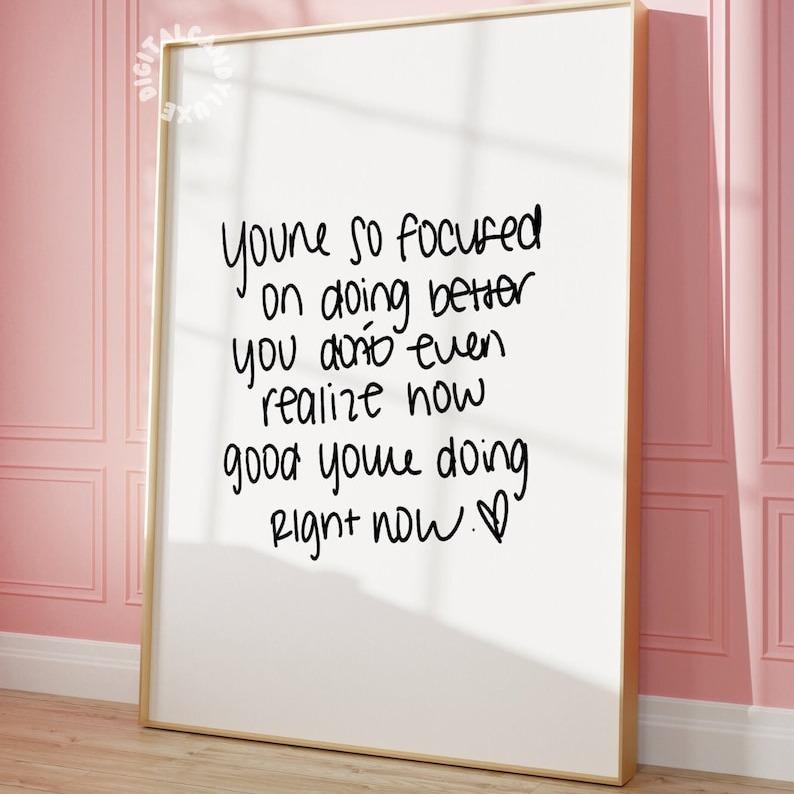 DIGITALCANDYLUXE
youre so focused
on doing better
you don't even
realize how
good youre doing
Right now. ♡